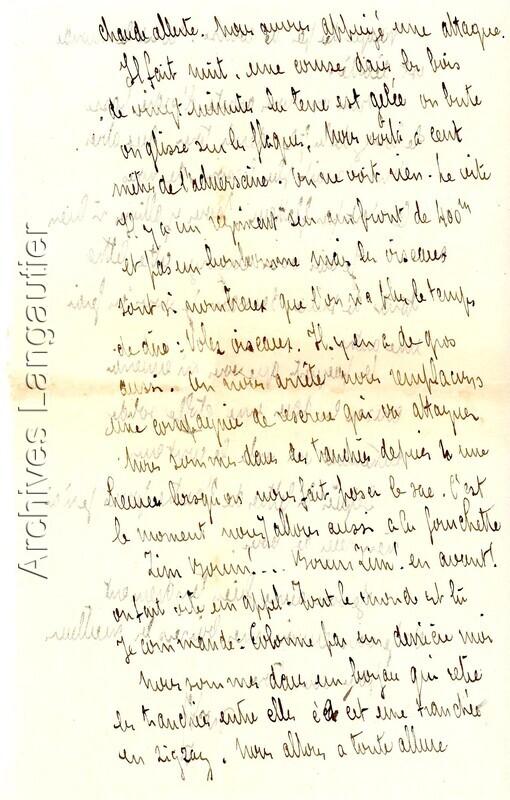 chaude allerte. Nous avons appuyé une attaque.
Il fait nuit, une course dans les bois
de vingt minutes la terre est gelée on bute
on glisse sur les flaques. Nous voilà à cent
mètres de l'adversaire. On ne voit rien. Le
Il y a un regiment sur un front de 400m
et pas un homme mais les oiseaux
sont si nombreux que l'on n'a plus le temps
de dire : Volez oiseaux. Il y en a de gros
aussi. On nous arrête nous remplaçons
une compagnie de reserve qui va attaquer
Nous sommes dans des tranchées depuis 1 une
heure lorsqu'on nous fait poser le sac. C'est
le moment nous y allons aussi a la fourchette
Zim Boum!... Boum Zim! en avant!
on fait vite un appel. Tout le monde est là
Je commande : Colonne par un derrière moi
Nous sommes dans un boyau qui relie
les tranchées entre elles c'est une tranchée
en zigzag. Nous allons a toute allure
Archives Langautier